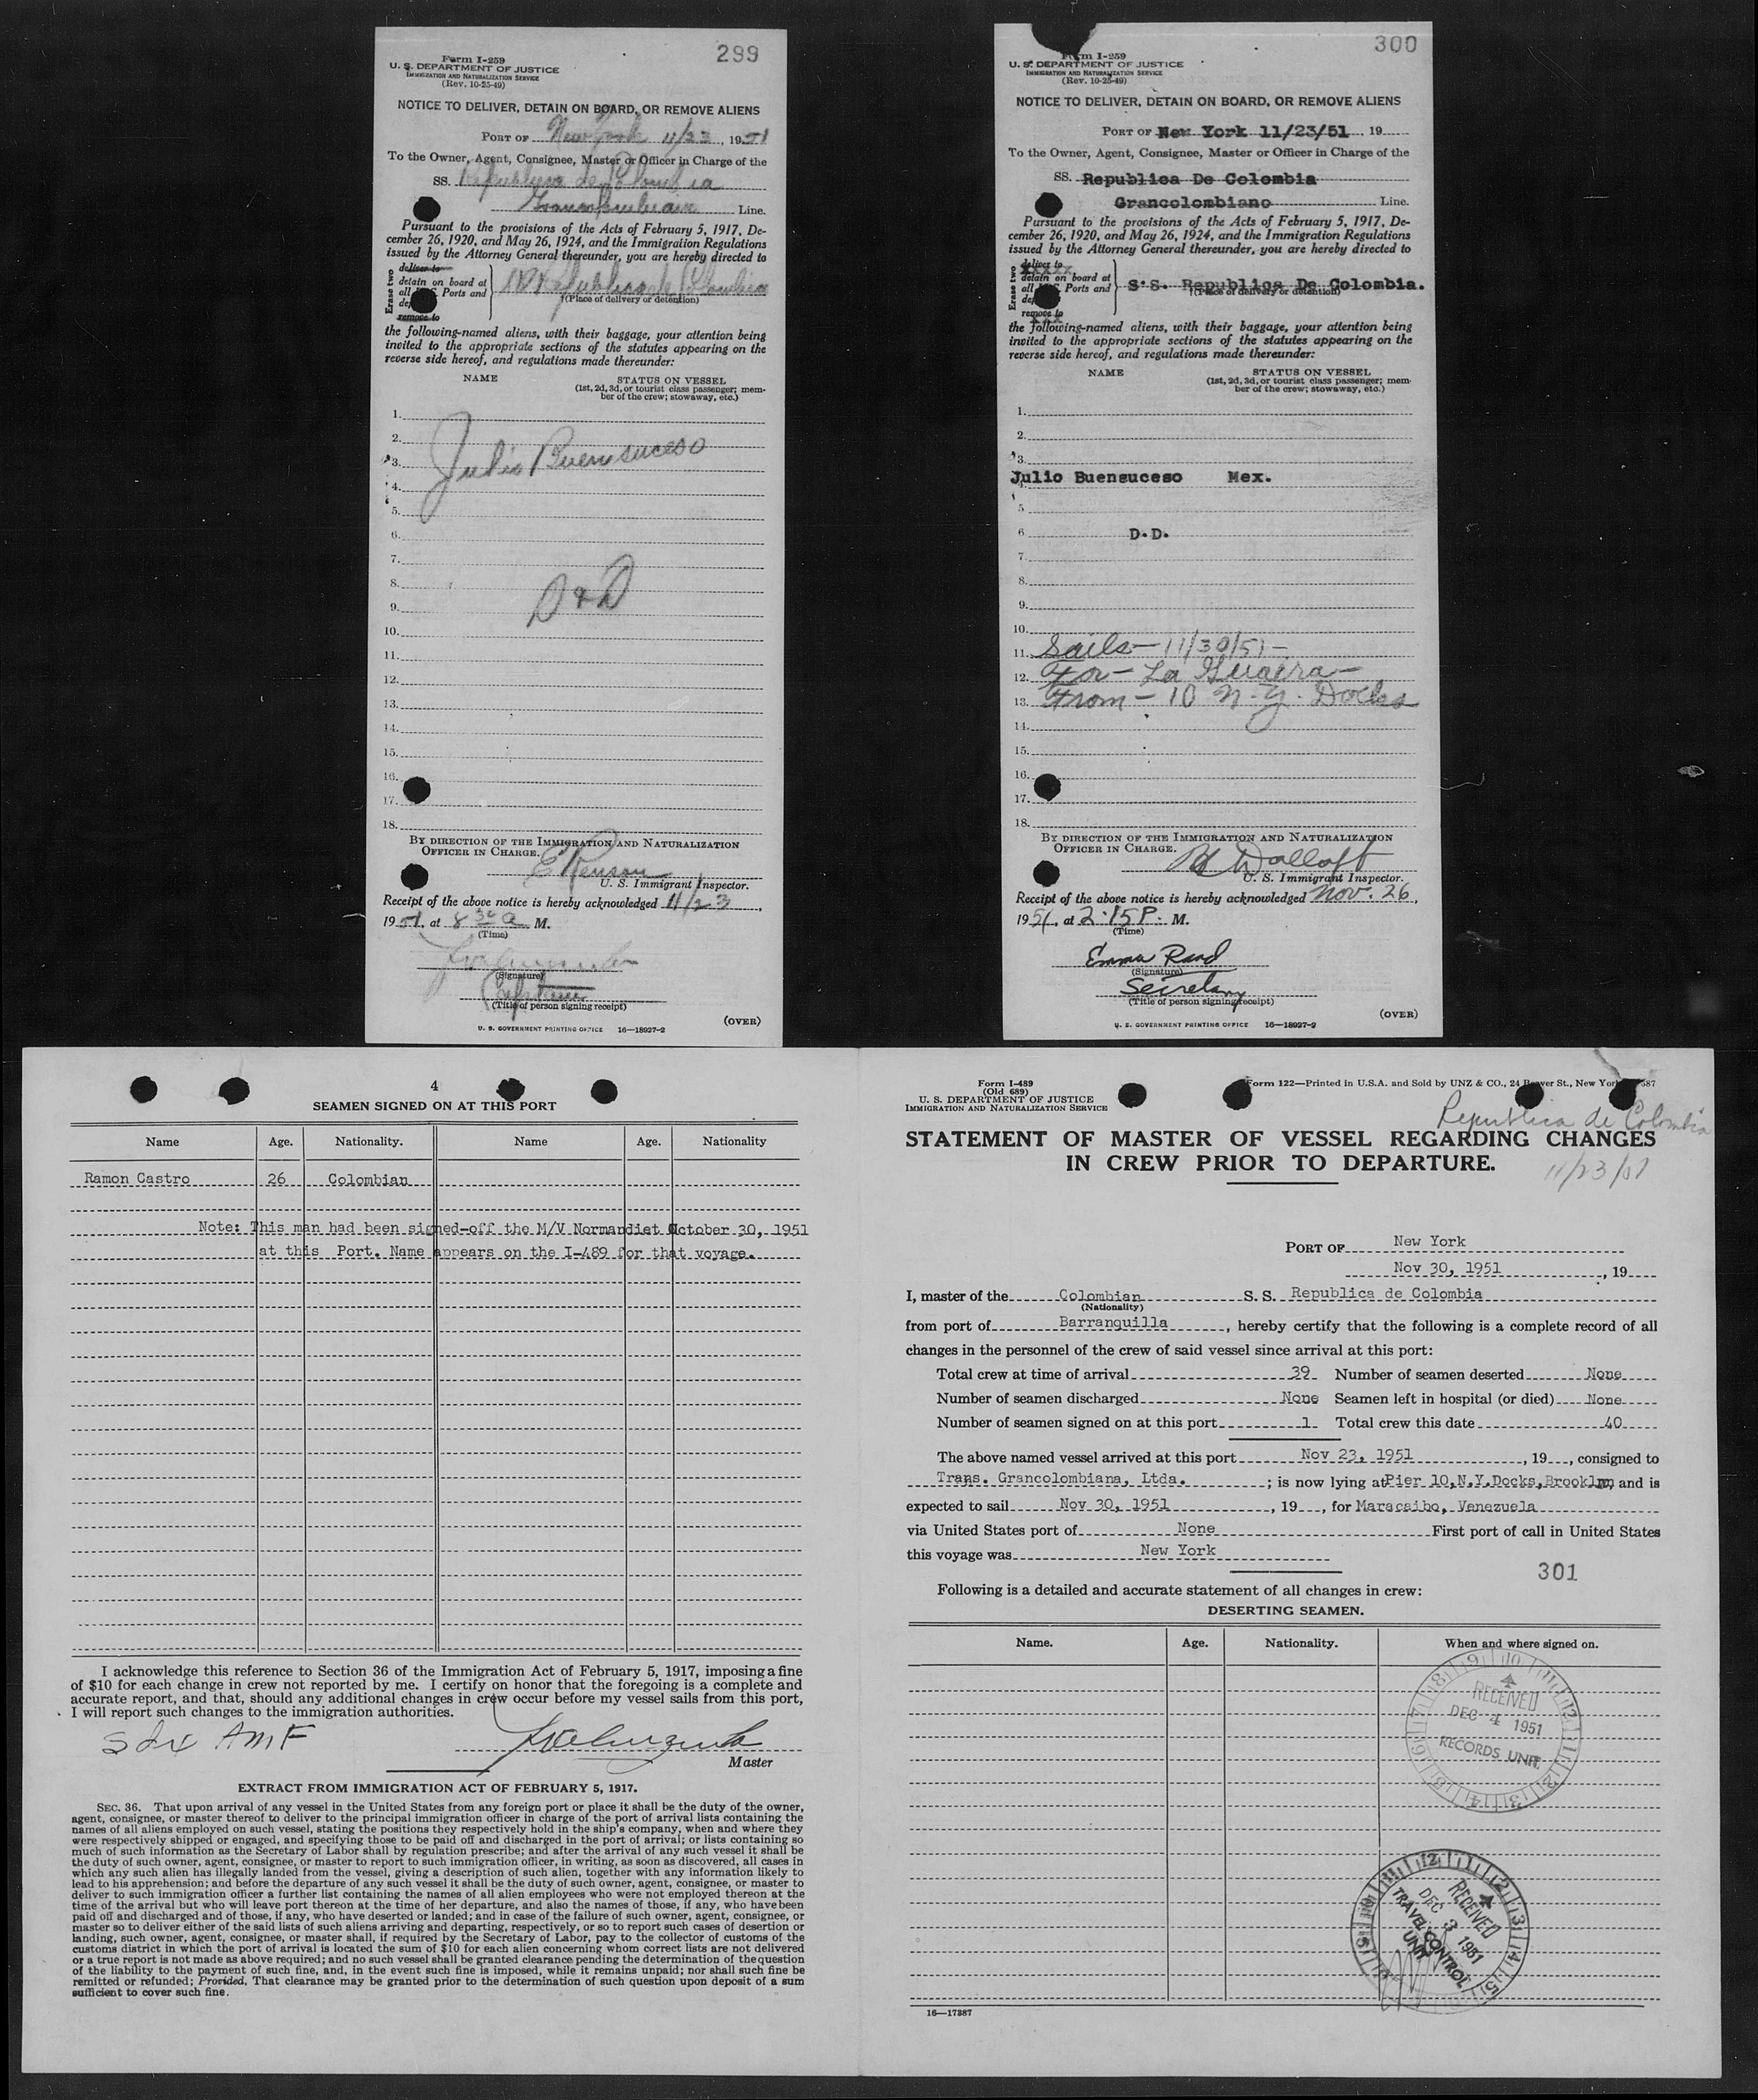 299
Form I-259
U. S. DEPARTMENT OF JUSTICE
IMMIGRATION AND NATURALIZATION SERVICE
(Rev. 10-25-49)
NOTICE TO DELIVER, DETAIN ON BOARD, OR REMOVE ALIENS
PORT OF New York 11/23, 1951
To the Owner, Agent, Consignee, Master or Officer in Charge of the
SS. Republica de Colombia
Line.
Pursuant to the provisions of the Acts of February 5, 1917, De-
cember 26, 1920, and May 26, 1924, and the Immigration Regulations
issued by the Attorney General thereunder, you are hereby directed to
Erase two
deliver to
detain on board at
all Ports and
remove to
Republica de Colombia
(Place of delivery or detention)
the following-named aliens, with their baggage, your attention being
invited to the appropriate sections of the statutes appearing on the
reverse side hereof, and regulations made thereunder:
NAME STATUS ON VESSEL
(1st, 2d, 3d, or tourist class passenger; mem-
ber of the crew; stowaway, etc.)
1.
2.
3. Julio Buensuceso
4.
5.
6.
7.
8. D & D
9.
10.
11.
12.
13.
14.
15.
16.
17.
18.
BY DIRECTION OF THE IMMIGRATION AND NATURALIZATION
OFFICER IN CHARGE.
U. S. Immigrant Inspector.
Receipt of the above notice is hereby acknowledged 11/23,
1951, at 8 30 a M.
(Time)
(Signature)
Captain
(Title of person signing receipt)
(OVER)
U. S. GOVERNMENT PRINTING OFFICE 16—18927-2
300
Form I-259
U. S. DEPARTMENT OF JUSTICE
IMMIGRATION AND NATURALIZATION SERVICE
(Rev. 10-25-49)
NOTICE TO DELIVER, DETAIN ON BOARD, OR REMOVE ALIENS
PORT OF New York 11/23/51, 19
To the Owner, Agent, Consignee, Master or Officer in Charge of the
SS. Republica De Colombia
Grancolombiano Line.
Pursuant to the provisions of the Acts of February 5, 1917, De-
cember 26, 1920, and May 26, 1924, and the Immigration Regulations
issued by the Attorney General thereunder, you are hereby directed to
Erase two
deliver to
detain on board at
all Ports and
remove to
S.S. Republica De Colombia.
(Place of delivery or detention)
the following-named aliens, with their baggage, your attention being
invited to the appropriate sections of the statutes appearing on the
reverse side hereof, and regulations made thereunder:
NAME STATUS ON VESSEL
(1st, 2d, 3d, or tourist class passenger; mem-
ber of the crew; stowaway, etc.)
1.
2.
3.
Julio Buensuceso Mex.
4.
5
6 D.D.
7.
8.
9.
10.
11. Sails - 11/30/51 -
12. For - La Guaira -
13. From - 10 N-Y. Docks
14.
15.
16.
17.
18.
BY DIRECTION OF THE IMMIGRATION AND NATURALIZATION
OFFICER IN CHARGE.
U. S. Immigrant Inspector.
Receipt of the above notice is hereby acknowledged Nov. 26,
1951, at 2:15 P. M.
(Time)
Emma Rand
(Signature)
Secretary
(Title of person signing receipt)
(OVER)
U. S. GOVERNMENT PRINTING OFFICE 16—18927-2
4
SEAMEN SIGNED ON AT THIS PORT
Name Age. Nationality. Name Age. Nationality
Ramon Castro 26 Colombian
Note: This man had been signed-off the M/V Normandiet October 30, 1951
at this Port. Name appears on the I-489 for that voyage.
I acknowledge this reference to Section 36 of the Immigration Act of February 5, 1917, imposing a fine
of $10 for each change in crew not reported by me. I certify on honor that the foregoing is a complete and
accurate report, and that, should any additional changes in crew occur before my vessel sails from this port,
I will report such changes to the immigration authorities.
Master
EXTRACT FROM IMMIGRATION ACT OF FEBRUARY 5, 1917.
SEC. 36. That upon arrival of any vessel in the United States from any foreign port or place it shall be the duty of the owner,
agent, consignee, or master thereof to deliver to the principal immigration officer in charge of the port of arrival lists containing the
names of all aliens employed on such vessel, stating the positions they respectively hold in the ship's company, when and where they
were respectively shipped or engaged, and specifying those to be paid off and discharged in the port of arrival; or lists containing so
much of such information as the Secretary of Labor shall by regulation prescribe; and after the arrival of any such vessel it shall be
the duty of such owner, agent, consignee, or master to report to such immigration officer, in writing, as soon as discovered, all cases in
which any such alien has illegally landed from the vessel, giving a description of such alien, together with any information likely to
lead to his apprehension; and before the departure of any such vessel it shall be the duty of such owner, agent, consignee, or master to
deliver to such immigration officer a further list containing the names of all alien employees who were not employed thereon at the
time of the arrival but who will leave port thereon at the time of her departure, and also the names of those, if any, who have been
paid off and discharged and of those, if any, who have deserted or landed; and in case of the failure of such owner, agent, consignee, or
master so to deliver either of the said lists of such aliens arriving and departing, respectively, or so to report such cases of desertion or
landing, such owner, agent, consignee, or master shall, if required by the Secretary of Labor, pay to the collector of customs of the
customs district in which the port of arrival is located the sum of $10 for each alien concerning whom correct lists are not delivered
or a true report is not made as above required; and no such vessel shall be granted clearance pending the determination of the question
of the liability to the payment of such fine, and, in the event such fine is imposed, while it remains unpaid; nor shall such fine be
remitted or refunded; Provided, That clearance may be granted prior to the determination of such question upon deposit of a sum
sufficient to cover such fine.
Form I-489
(Old 689)
U. S. DEPARTMENT OF JUSTICE
IMMIGRATION AND NATURALIZATION SERVICE
Form 122—Printed in U.S.A. and Sold by UNZ & CO., 24 Beaver St., New York
Republica de Colombia
STATEMENT OF MASTER OF VESSEL REGARDING CHANGES
IN CREW PRIOR TO DEPARTURE.
11/23/51
PORT OF New York
Nov 30, 1951, 19
I, master of the Colombian S. S. Republica de Colombia
(Nationality)
from port of Barranquilla, hereby certify that the following is a complete record of all
changes in the personnel of the crew of said vessel since arrival at this port:
Total crew at time of arrival 39 Number of seamen deserted None
Number of seamen discharged None Seamen left in hospital (or died) None
Number of seamen signed on at this port 1 Total crew this date 40
The above named vessel arrived at this port Nov 23, 1951, 19, consigned to
Trans. Grancolombiana, Ltda.; is now lying at Pier 10, N.Y. Docks, Brooklyn, and is
expected to sail Nov 30, 1951, 19, for Maracaibo, Venezuela
via United States port of None First port of call in United States
this voyage was New York
301
Following is a detailed and accurate statement of all changes in crew:
DESERTING SEAMEN.
Name. Age. Nationality. When and where signed on.
RECEIVED
DEC 4 1951
RECORDS UNIT
RECEIVED
DEC 3 1951
TRAVEL CONTROL
UNIT
16—17387